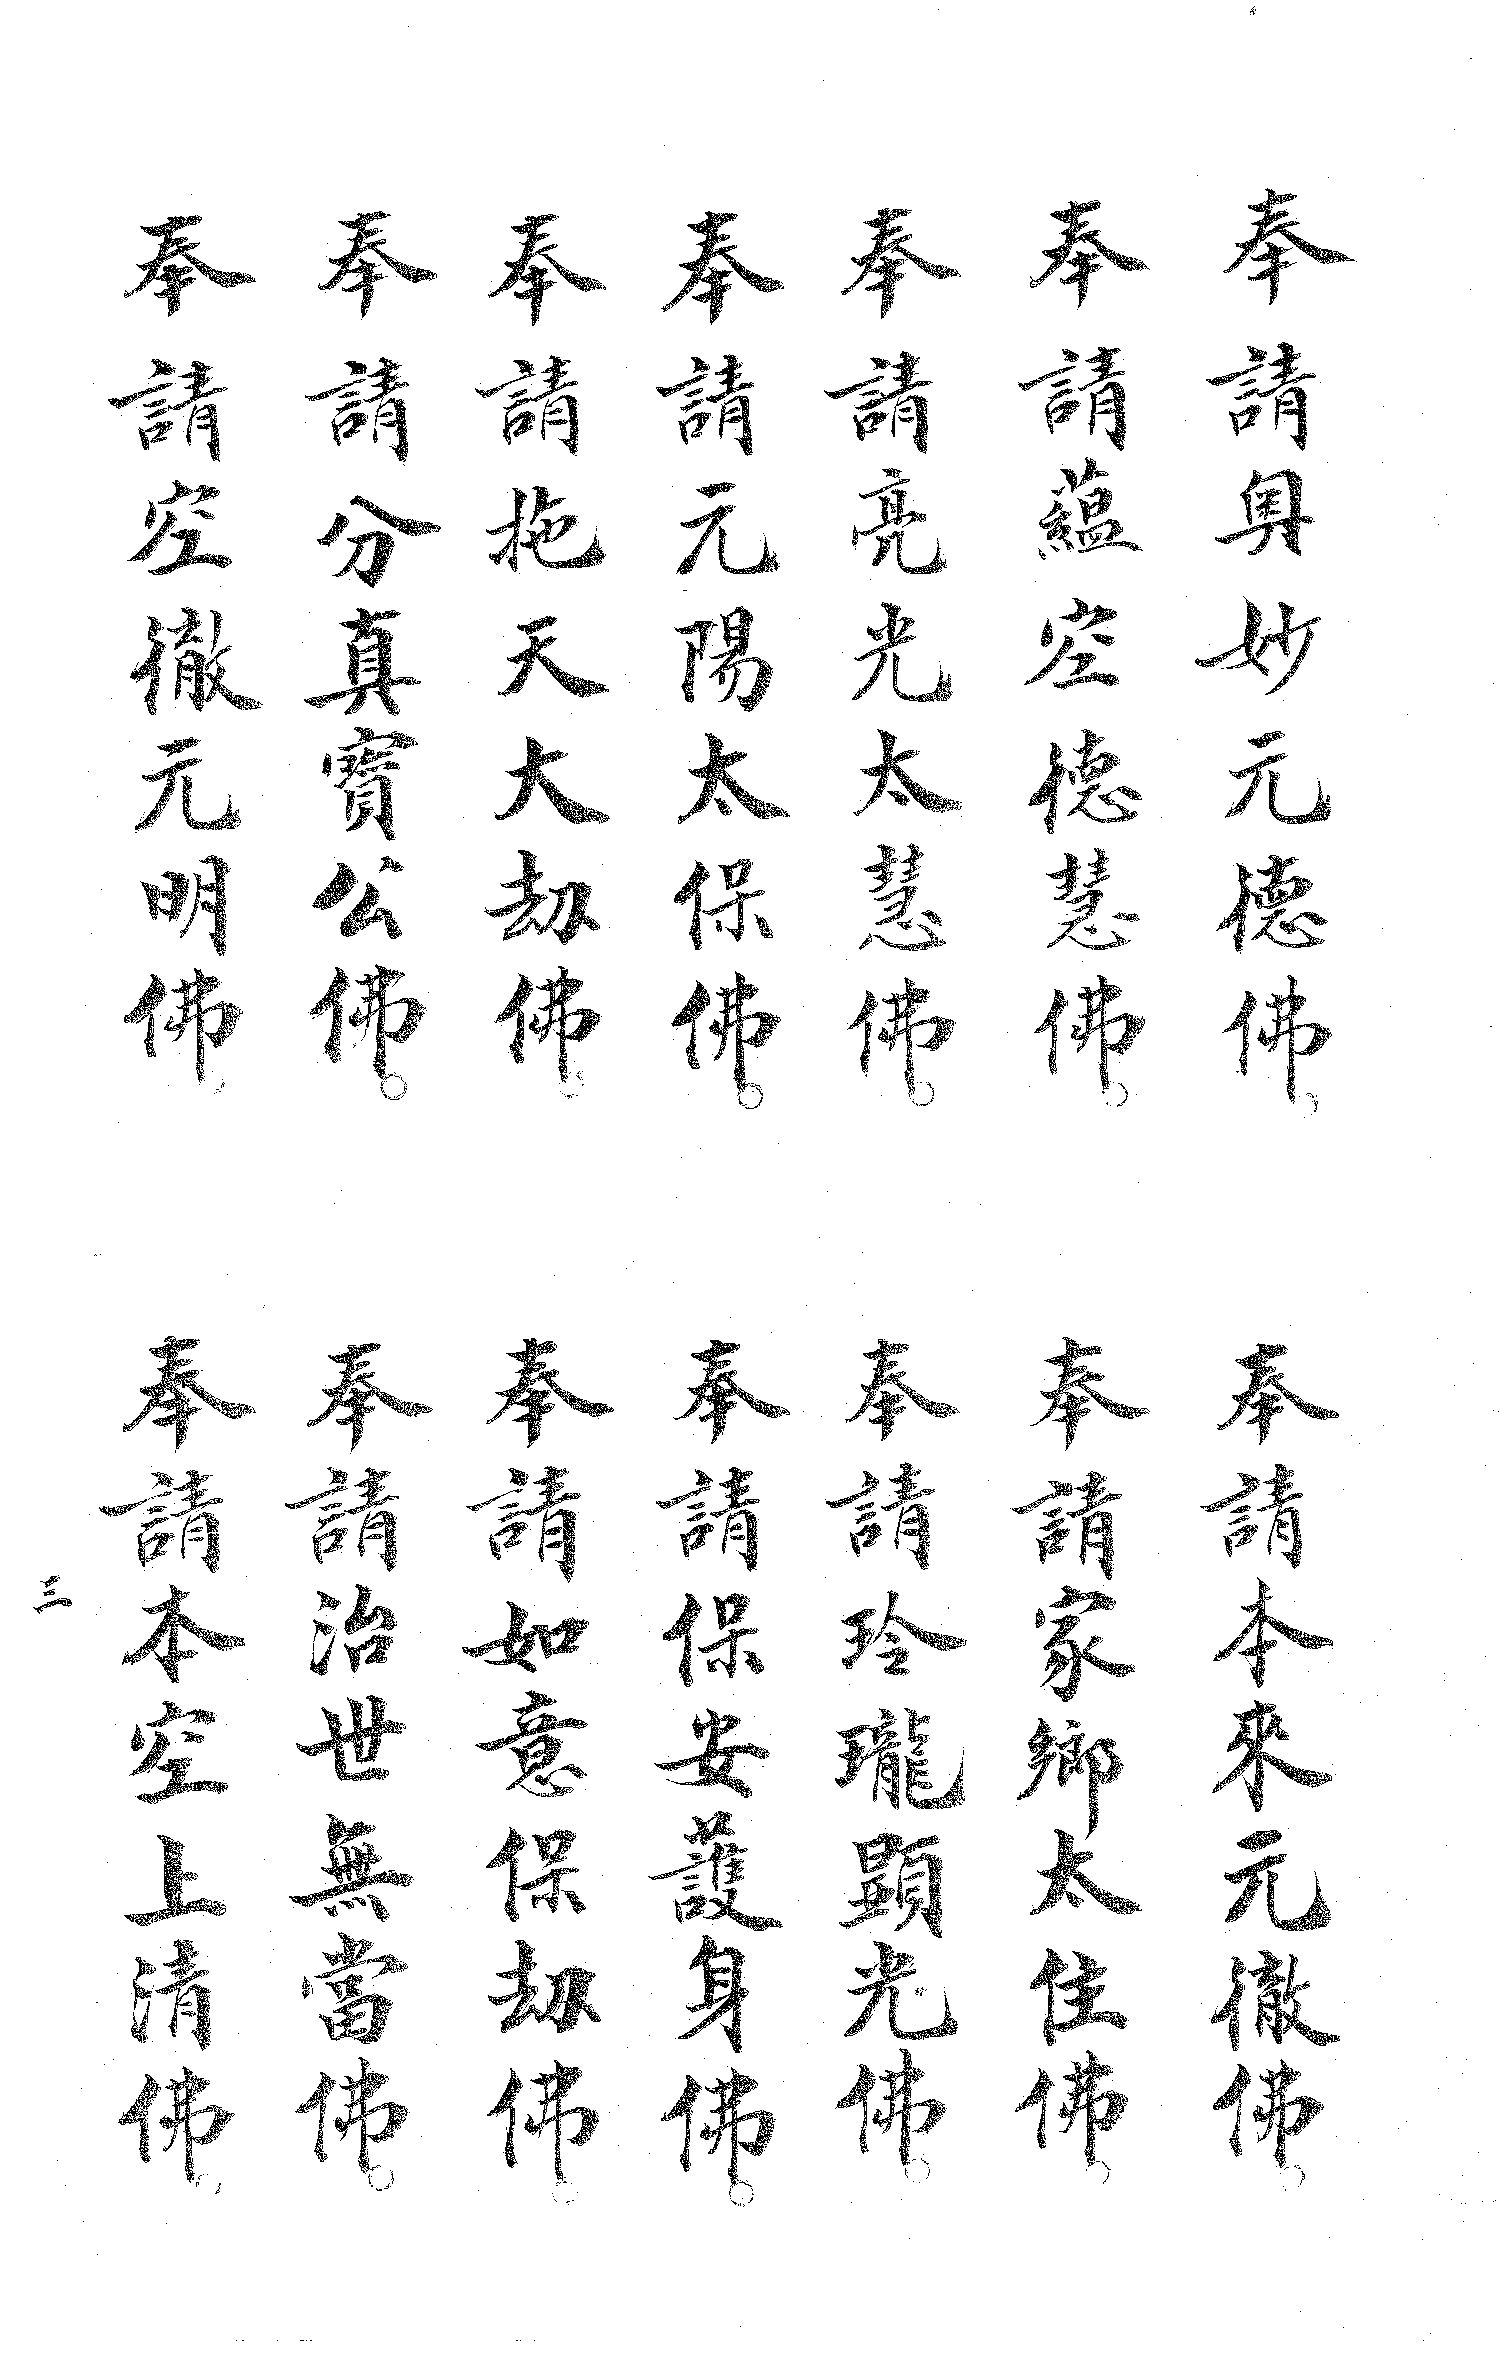 奉請奧妙元德佛。
奉請蘊空德慧佛。
奉請亮光太慧佛。
奉請元陽太保佛。
奉請拖天大劫佛。
奉請分真寶公佛。
奉請空徹元明佛。
奉請本來元徹佛。
奉請家鄉太住佛。
奉請玲瓏顯光佛。
奉請保安護身佛。
奉請如意保劫佛。
奉請治世無當佛。
奉請本空上清佛。
三